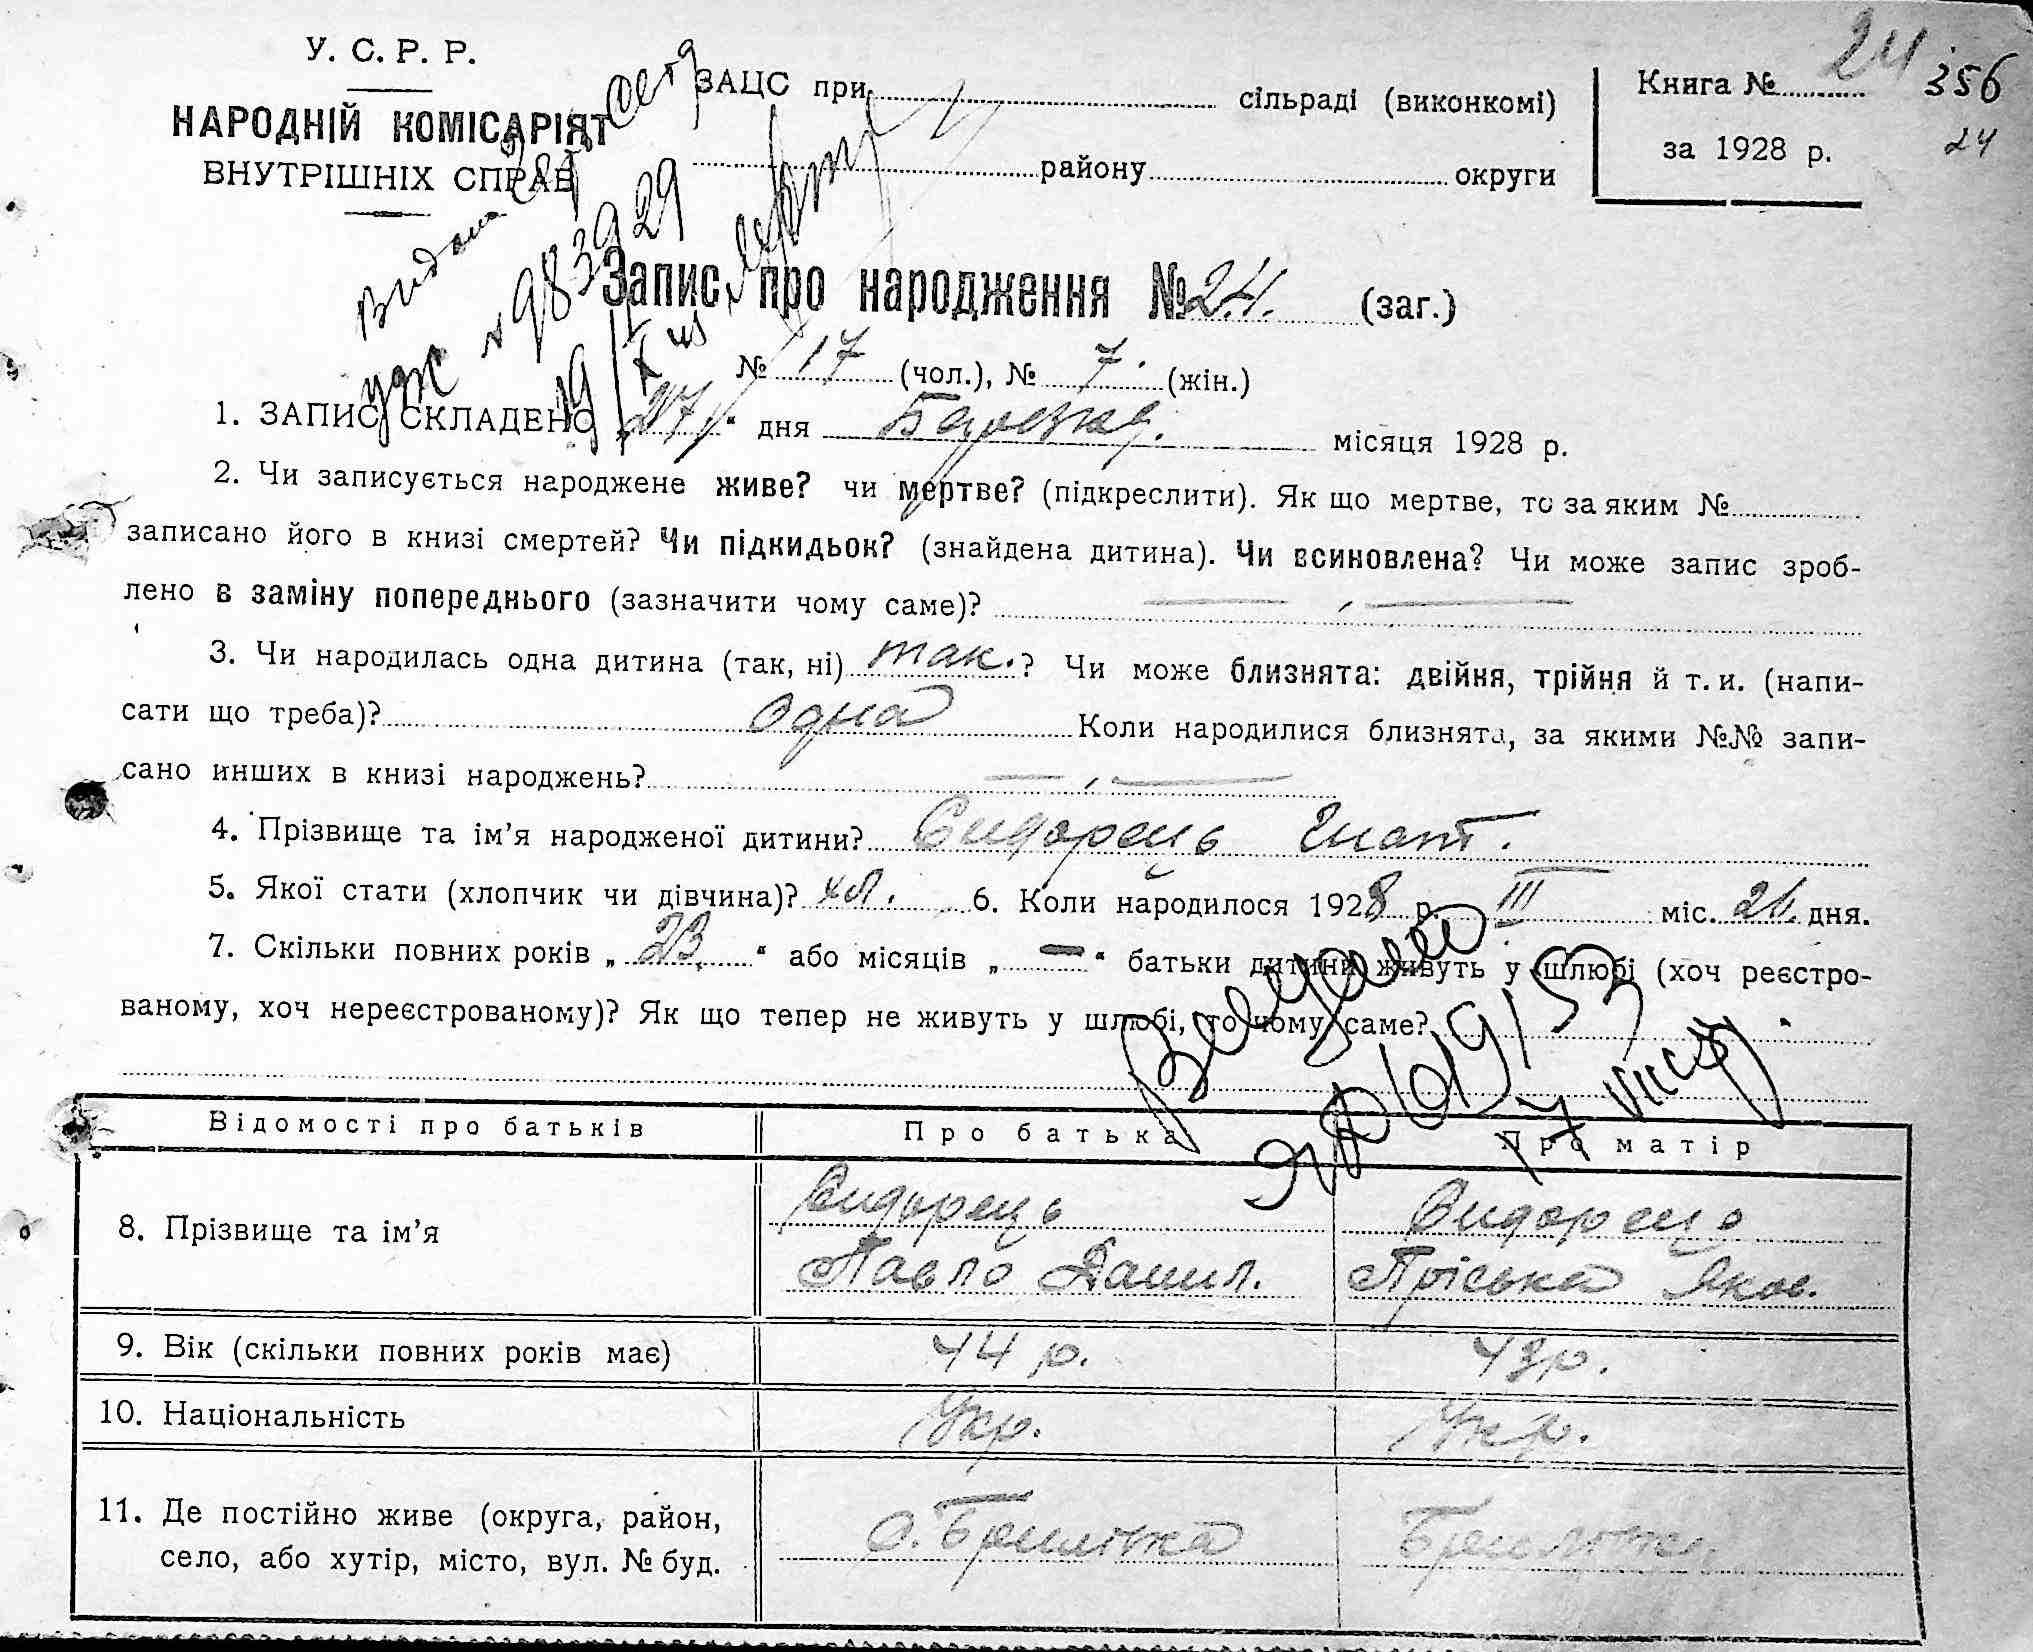 У. С. Р. Р.
НАРОДНІЙ КОМІСАРІЯТ
ВНУТРІШНІХ СПРАВ
ЗАЦС при сільраді (виконкомі)
району округи
Книга № 24
за 1928 р.
356
24
№ 983929
Запис про народження № 24. (заг.)
№ 17 (чол.), № 7. (жін.)
1. ЗАПИС СКЛАДЕНО „27“ дня Березня. місяця 1928 р.
2. Чи записується народжене живе? чи мертве? (підкреслити). Як що мертве, то за яким №
записано його в книзі смертей? Чи підкидьок? (знайдена дитина). Чи всиновлена? Чи може запис зроб-
лено в заміну попереднього (зазначити чому саме)? — , —
3. Чи народилась одна дитина (так, ні) так.? Чи може близнята: двійня, трійня й т. и. (напи-
сати що треба)? Одна Коли народилися близнята, за якими №№ запи-
сано инших в книзі народжень? — , —
4. Прізвище та ім’я народженої дитини? Сидорець Гнат.
5. Якої стати (хлопчик чи дівчина)? хл. 6. Коли народилося 1928 р. III міс. 21. дня.
7. Скільки повних років „ 23 “ або місяців „ — “ батьки дитини живуть у шлюбі (хоч реєстро-
ваному, хоч нереєстрованому)? Як що тепер не живуть у шлюбі, то чому саме?
Відомості про батьків Про батька Про матір
8. Прізвище та ім’я
Сидорець
Павло Данил.
Сидорець
Пріська Яков.
9. Вік (скільки повних років має) 44 р. 43 р.
10. Національність Укр. Укр.
11. Де постійно живе (округа, район,
село, або хутір, місто, вул. № буд.
с. Брилівка
Брилівка